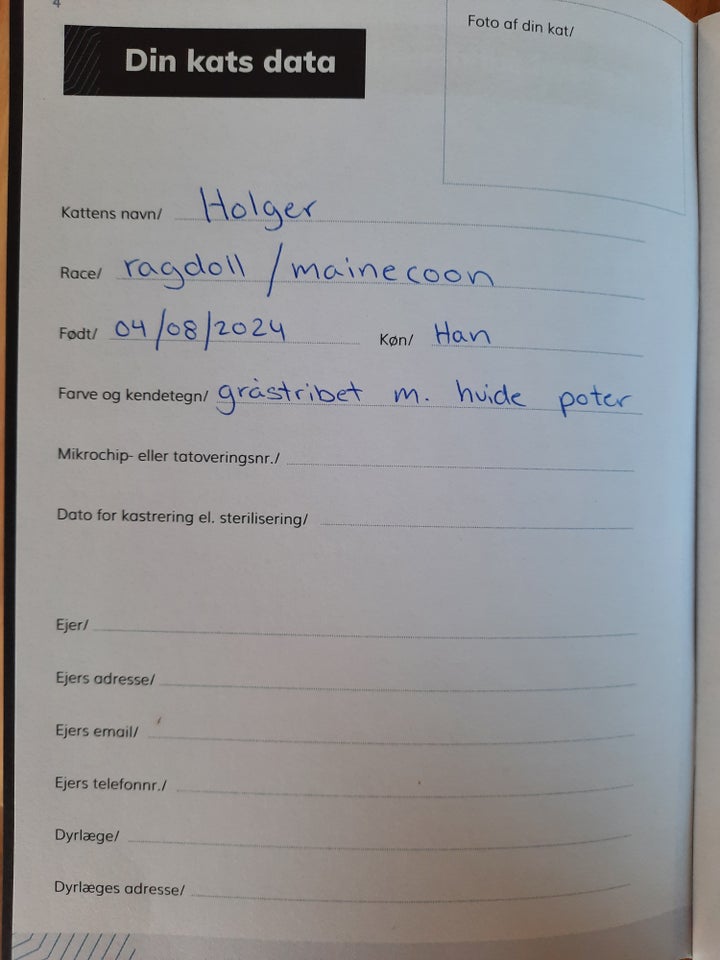 4
Foto af din kat/
Din kats data
Kattens navn/ Holger
Race/ ragdoll / mainecoon
Født/ 04/08/2024 Køn/ Han
Farve og kendetegn/ gråstribet m. hvide poter
Mikrochip- eller tatoveringsnr./
Dato for kastrering el. sterilisering/
Ejer/
Ejers adresse/
Ejers email/
Ejers telefonnr./
Dyrlæge/
Dyrlæges adresse/